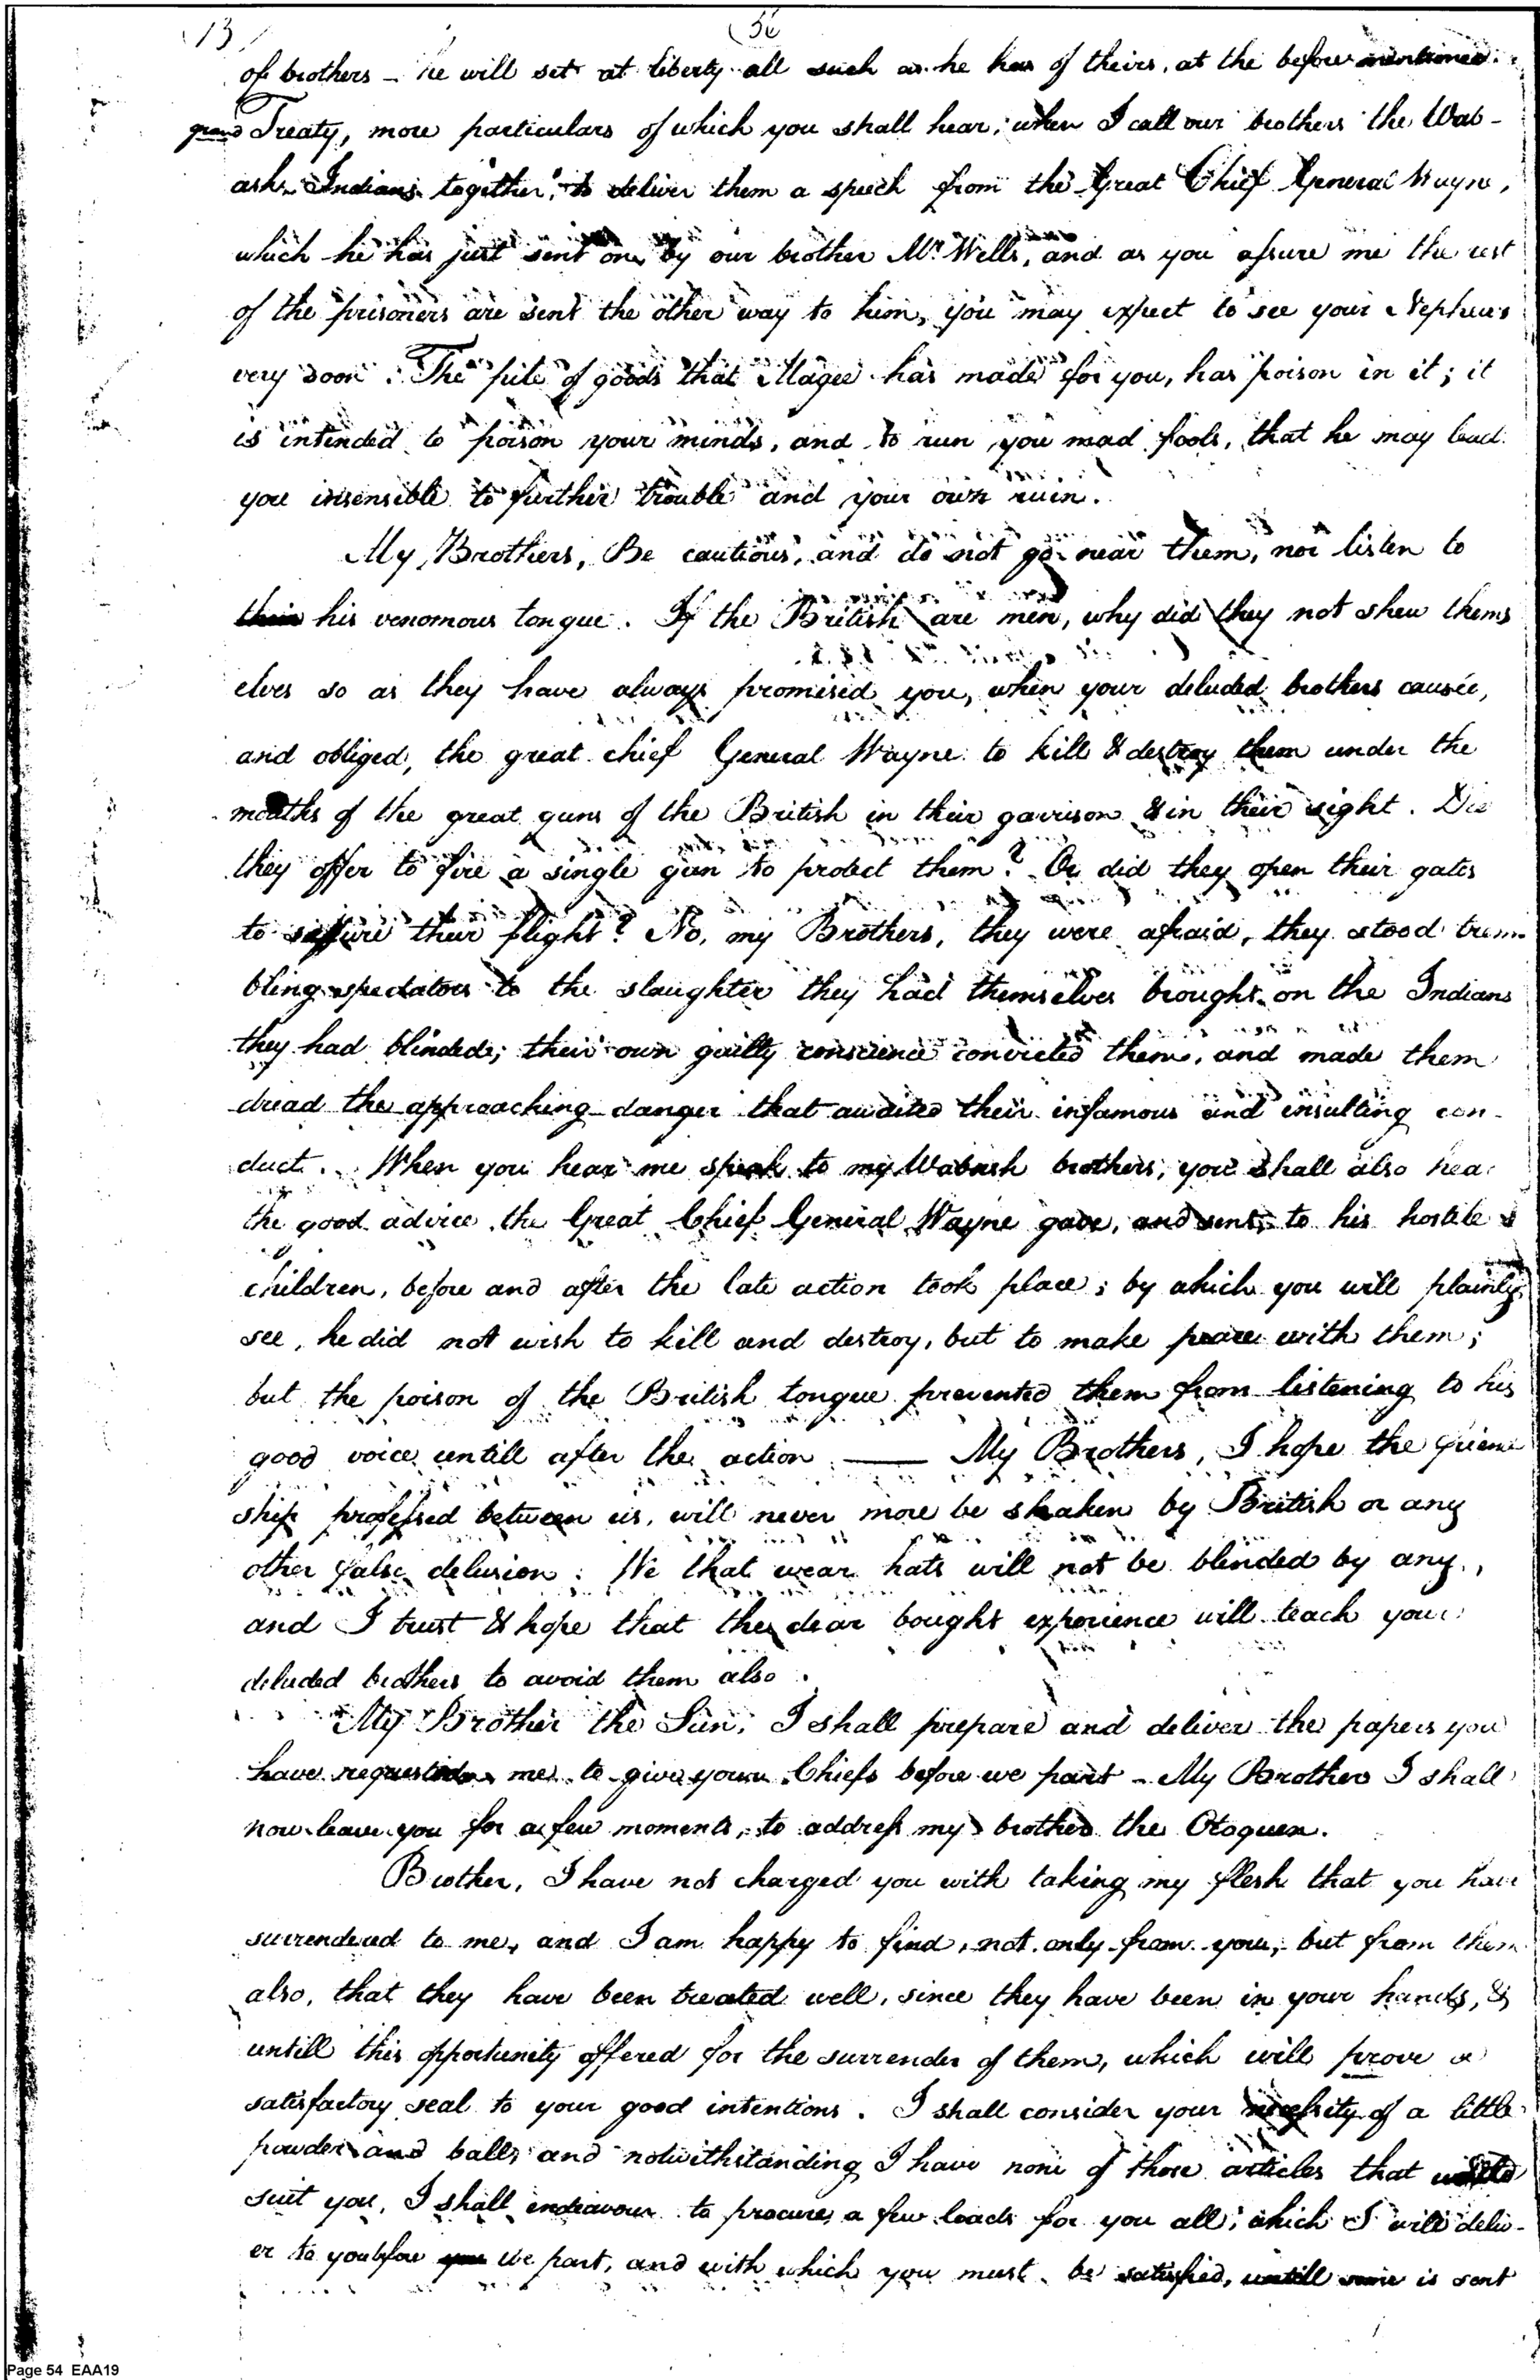 13
of brothers – he will set at liberty all such as he has of theirs, at the before mentioned
grand Treaty, more particulars of which you shall hear, when I call our brothers the Wab-
ash Indians together, to deliver them a speech from the Great Chief General Wayne,
which he has just sent on, by our brother Mr. Wells, and as you assure me the rest
of the prisoners are sent the other way to him, you may expect to see your Nephews
very soon. The pile of goods that Magee has made for you, has poison in it; it
is intended to poison your minds, and to run you mad fools, that he may lead
you insensible to further trouble and your own ruin.
My Brothers, Be cautious, and do not go near them, nor listen to
their his venomous tongue. If the British are men, why did they not shew thems
elves so as they have always promised you, when your deluded brothers caused,
and obliged, the great chief General Wayne to kill & destroy them under the
mouths of the great guns of the British in their garrison & in their sight. Did
they offer to fire a single gun to protect them? Or did they open their gates
to their flight? No, my Brothers, they were afraid, they stood trem
bling spectators to the slaughter they had themselves brought on the Indians
they had blinded; their own guilty conscience convicted them, and made them
dread the approaching danger that awaited their infamous and insulting con-
duct. When you hear me speak to my Wabash brothers, you shall also hear
the good advice the Great Chief General Wayne gave, and sent, to his hostile
children, before and after the late action took place; by which you will plainly
see, he did not wish to kill and destroy, but to make peace with them;
but the poison of the British tongue prevented them from listening to his
good voice untill after the action. —— My Brothers, I hope the friend
ship professed between us, will never more be shaken by British or any
other false delusion. We that wear hats will not be blinded by any,
and I trust & hope that the dear bought experience will teach your
deluded brothers to avoid them also.
My Brother the Sun, I shall prepare and deliver the papers you
have requested me to give your Chiefs before we part – My Brothers I shall
now leave you for a few moments, to address my brother the Otoquen.
Brother, I have not charged you with taking my flesh that you have
surrendered to me, and I am happy to find, not only from you, but from them
also, that they have been treated well, since they have been in your hands, &
untill this opportunity offered for the surrender of them, which will prove a
satisfactory seal to your good intentions. I shall consider your necessity of a little
powder and balls, and notwithstanding I have none of those articles that would
suit you, I shall endeavour to procure a few loads for you all, which I will deliv-
er to you before you we part, and with which you must be satisfied, untill some is sent
Page 54 EAA19